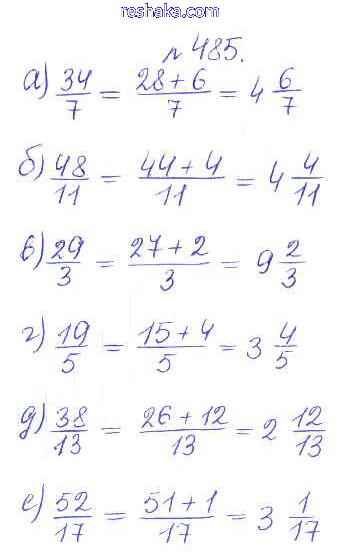 www.reshaka.com
№ 485.
а) 34/7 = 28+6/7 = 4 6/7
б) 48/11 = 44+4/11 = 4 4/11
в) 29/3 = 27+2/3 = 9 2/3
г) 19/5 = 15+4/5 = 3 4/5
д) 38/13 = 26+12/13 = 2 12/13
е) 52/17 = 51+1/17 = 3 1/17